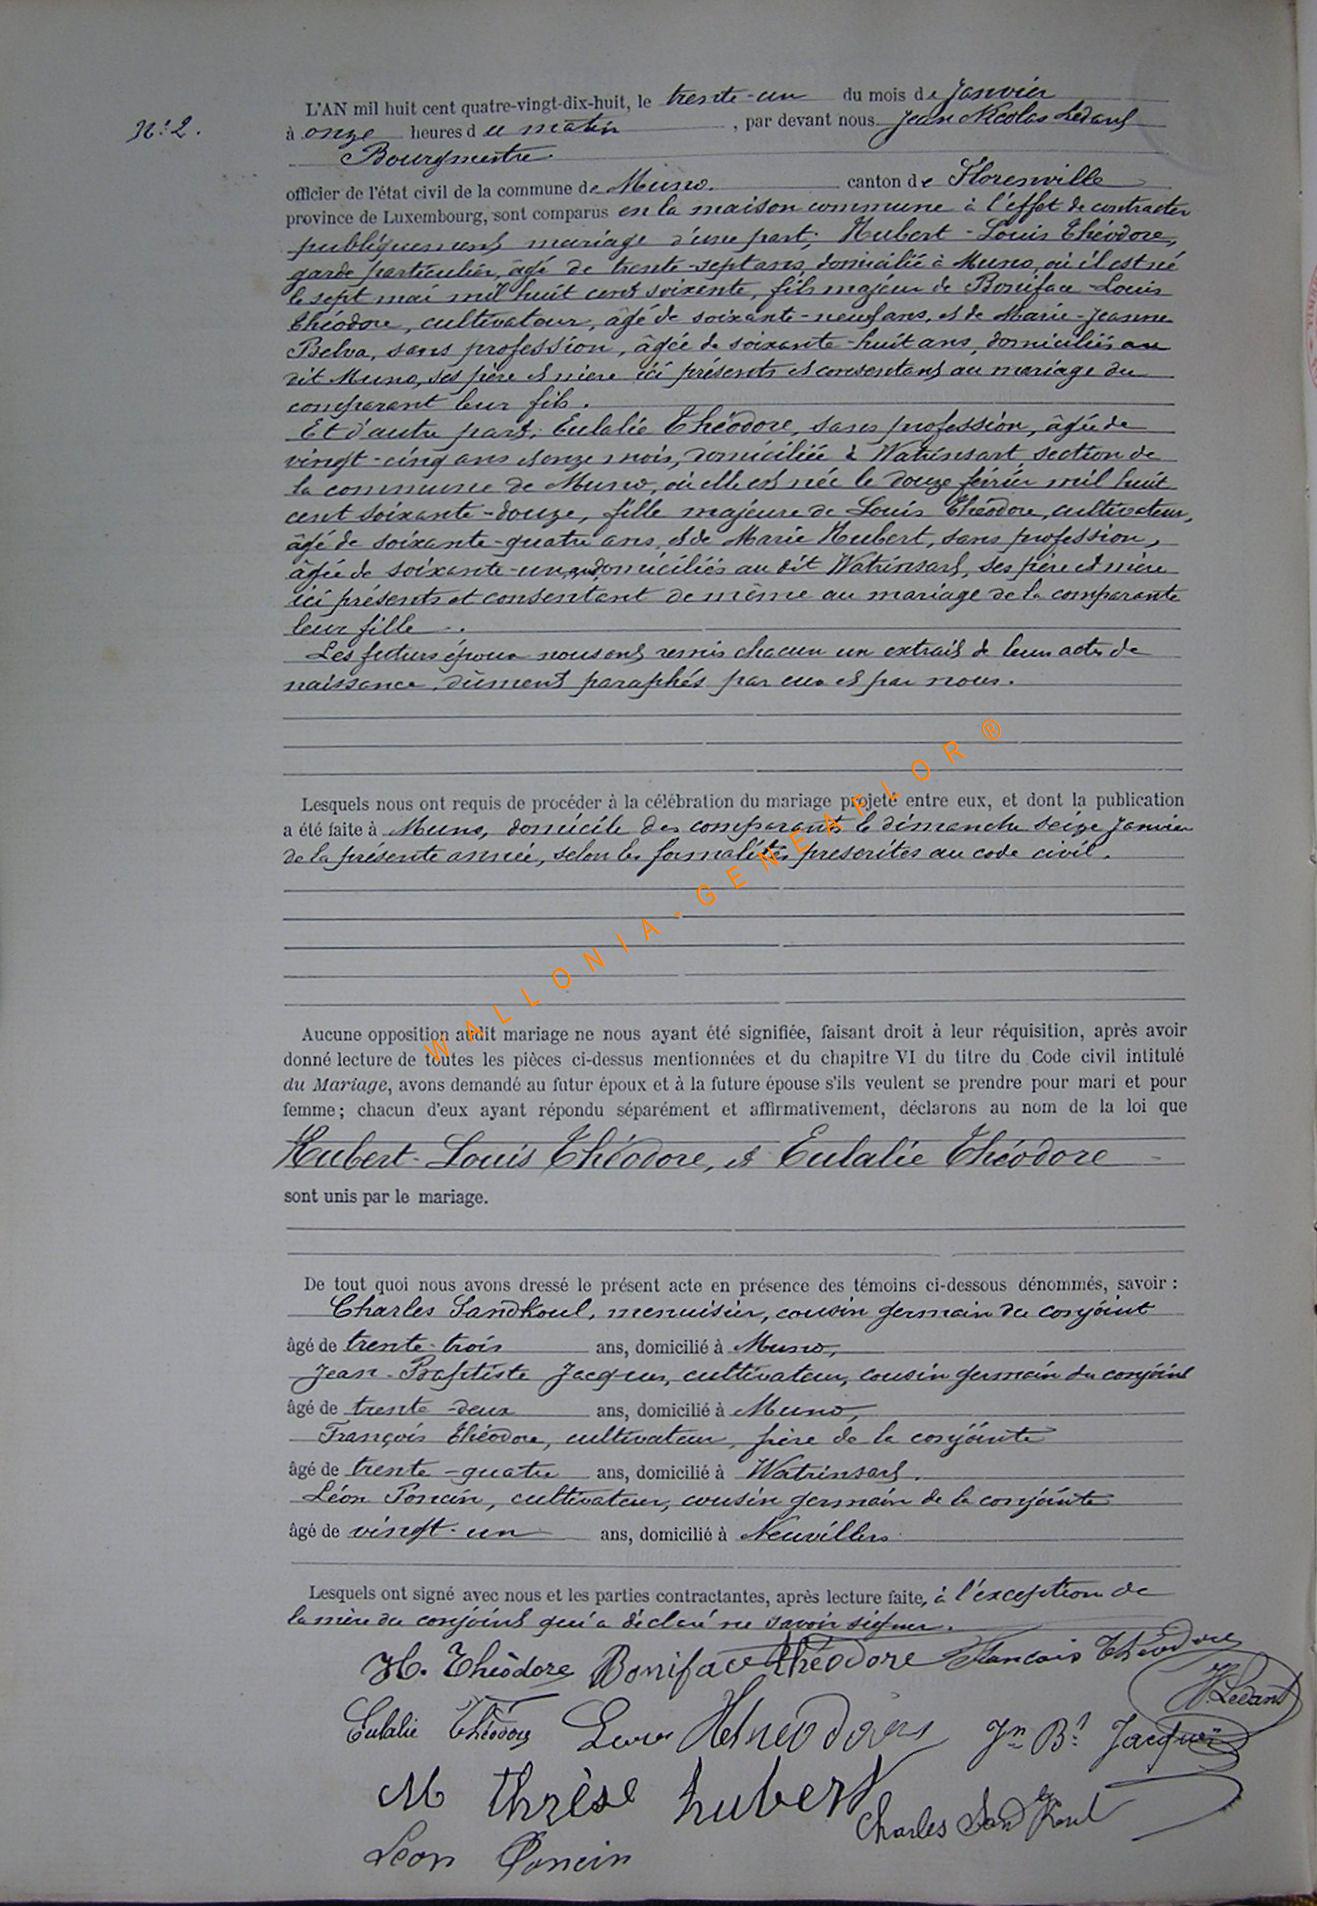 N° 2.
L'AN mil huit cent quatre-vingt-dix-huit, le trente-un du mois de Janvier
à onze heures du matin, par devant nous Jean Nicolas Ledant
Bourgmestre
officier de l'état civil de la commune de Muno. canton de Florenville
province de Luxembourg, sont comparus en la maison commune à l'effet de contracter
publiquement mariage d'une part; Hubert-Louis Théodore,
garde particulier, âgé de trente-sept ans, domicilié à Muno, où il est né
le sept mai mil huit cent soixante, fils majeur de Boniface-Louis
Théodore, cultivateur, âgé de soixante-neuf ans, et de Marie-Jeanne
Belva, sans profession, âgée de soixante-huit ans, domiciliés au
dit Muno, ses père et mère ici présents et consentant au mariage du
comparant leur fils.
Et d'autre part, Eulalie Théodore, sans profession, âgée de
vingt-cinq ans et onze mois, domiciliée à Watrinsart, section de
la commune de Muno, où elle est née le douze février mil huit
cent soixante-douze, fille majeure de Louis Théodore, cultivateur,
âgé de soixante-quatre ans, et de Marie Hubert, sans profession,
âgée de soixante-un ans, domiciliés au dit Watrinsart, ses père et mère
ici présents et consentant de même au mariage de la comparante
leur fille.
Les futurs époux nous ont remis chacun un extrait de leur acte de
naissance, dûment paraphés par eux et par nous.
Lesquels nous ont requis de procéder à la célébration du mariage projeté entre eux, et dont la publication
a été faite à Muno, domicile des comparants le dimanche seize Janvier
de la présente année, selon les formalités prescrites au code civil.
WALLONIA-GENEAFLOR®
Aucune opposition audit mariage ne nous ayant été signifiée, faisant droit à leur réquisition, après avoir
donné lecture de toutes les pièces ci-dessus mentionnées et du chapitre VI du titre du Code civil intitulé
du Mariage, avons demandé au futur époux et à la future épouse s'ils veulent se prendre pour mari et pour
femme; chacun d'eux ayant répondu séparément et affirmativement, déclarons au nom de la loi que
Hubert-Louis Théodore, et Eulalie Théodore
sont unis par le mariage.
De tout quoi nous avons dressé le présent acte en présence des témoins ci-dessous dénommés, savoir :
Charles Sandkoul, menuisier, cousin germain du conjoint
âgé de trente-trois ans, domicilié à Muno,
Jean-Baptiste Jacques, cultivateur, cousin germain du conjoint
âgé de trente-deux ans, domicilié à Muno,
François Théodore, cultivateur, frère de la conjointe
âgé de trente-quatre ans, domicilié à Watrinsart.
Léon Poncin, cultivateur, cousin germain de la conjointe
âgé de vingt-un ans, domicilié à Neuvillers
Lesquels ont signé avec nous et les parties contractantes, après lecture faite, à l'exception de
la mère du conjoint qui a déclaré ne savoir signer.
H. Théodore Boniface théodore Francois Théodore
Ledant
Eulalie Théodore Jn Bt Jacques
M thrèse hubert
Charles Sandkoul
Leon Poncin